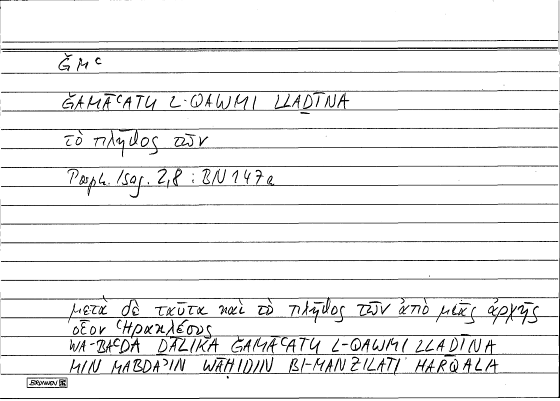 ǦMʿ
ǦAMĀʿATU L-QAWMI LLAḎĪNA
τὸ πλῆθος τῶν
Porph. Isag. 2,8 : BN 147a
μετὰ δὲ ταῦτα καὶ τὸ πλῆθος τῶν ἀπὸ μιᾶς ἀρχῆς
οἷον Ἡρακλέους
WA-BAʿDA ḎĀLIKA ǦAMĀʿATU L-QAWMI LLAḎĪNA
MIN MABDAʾIN WĀḤIDIN BI-MANZILATI HARQALA
BRUNNEN